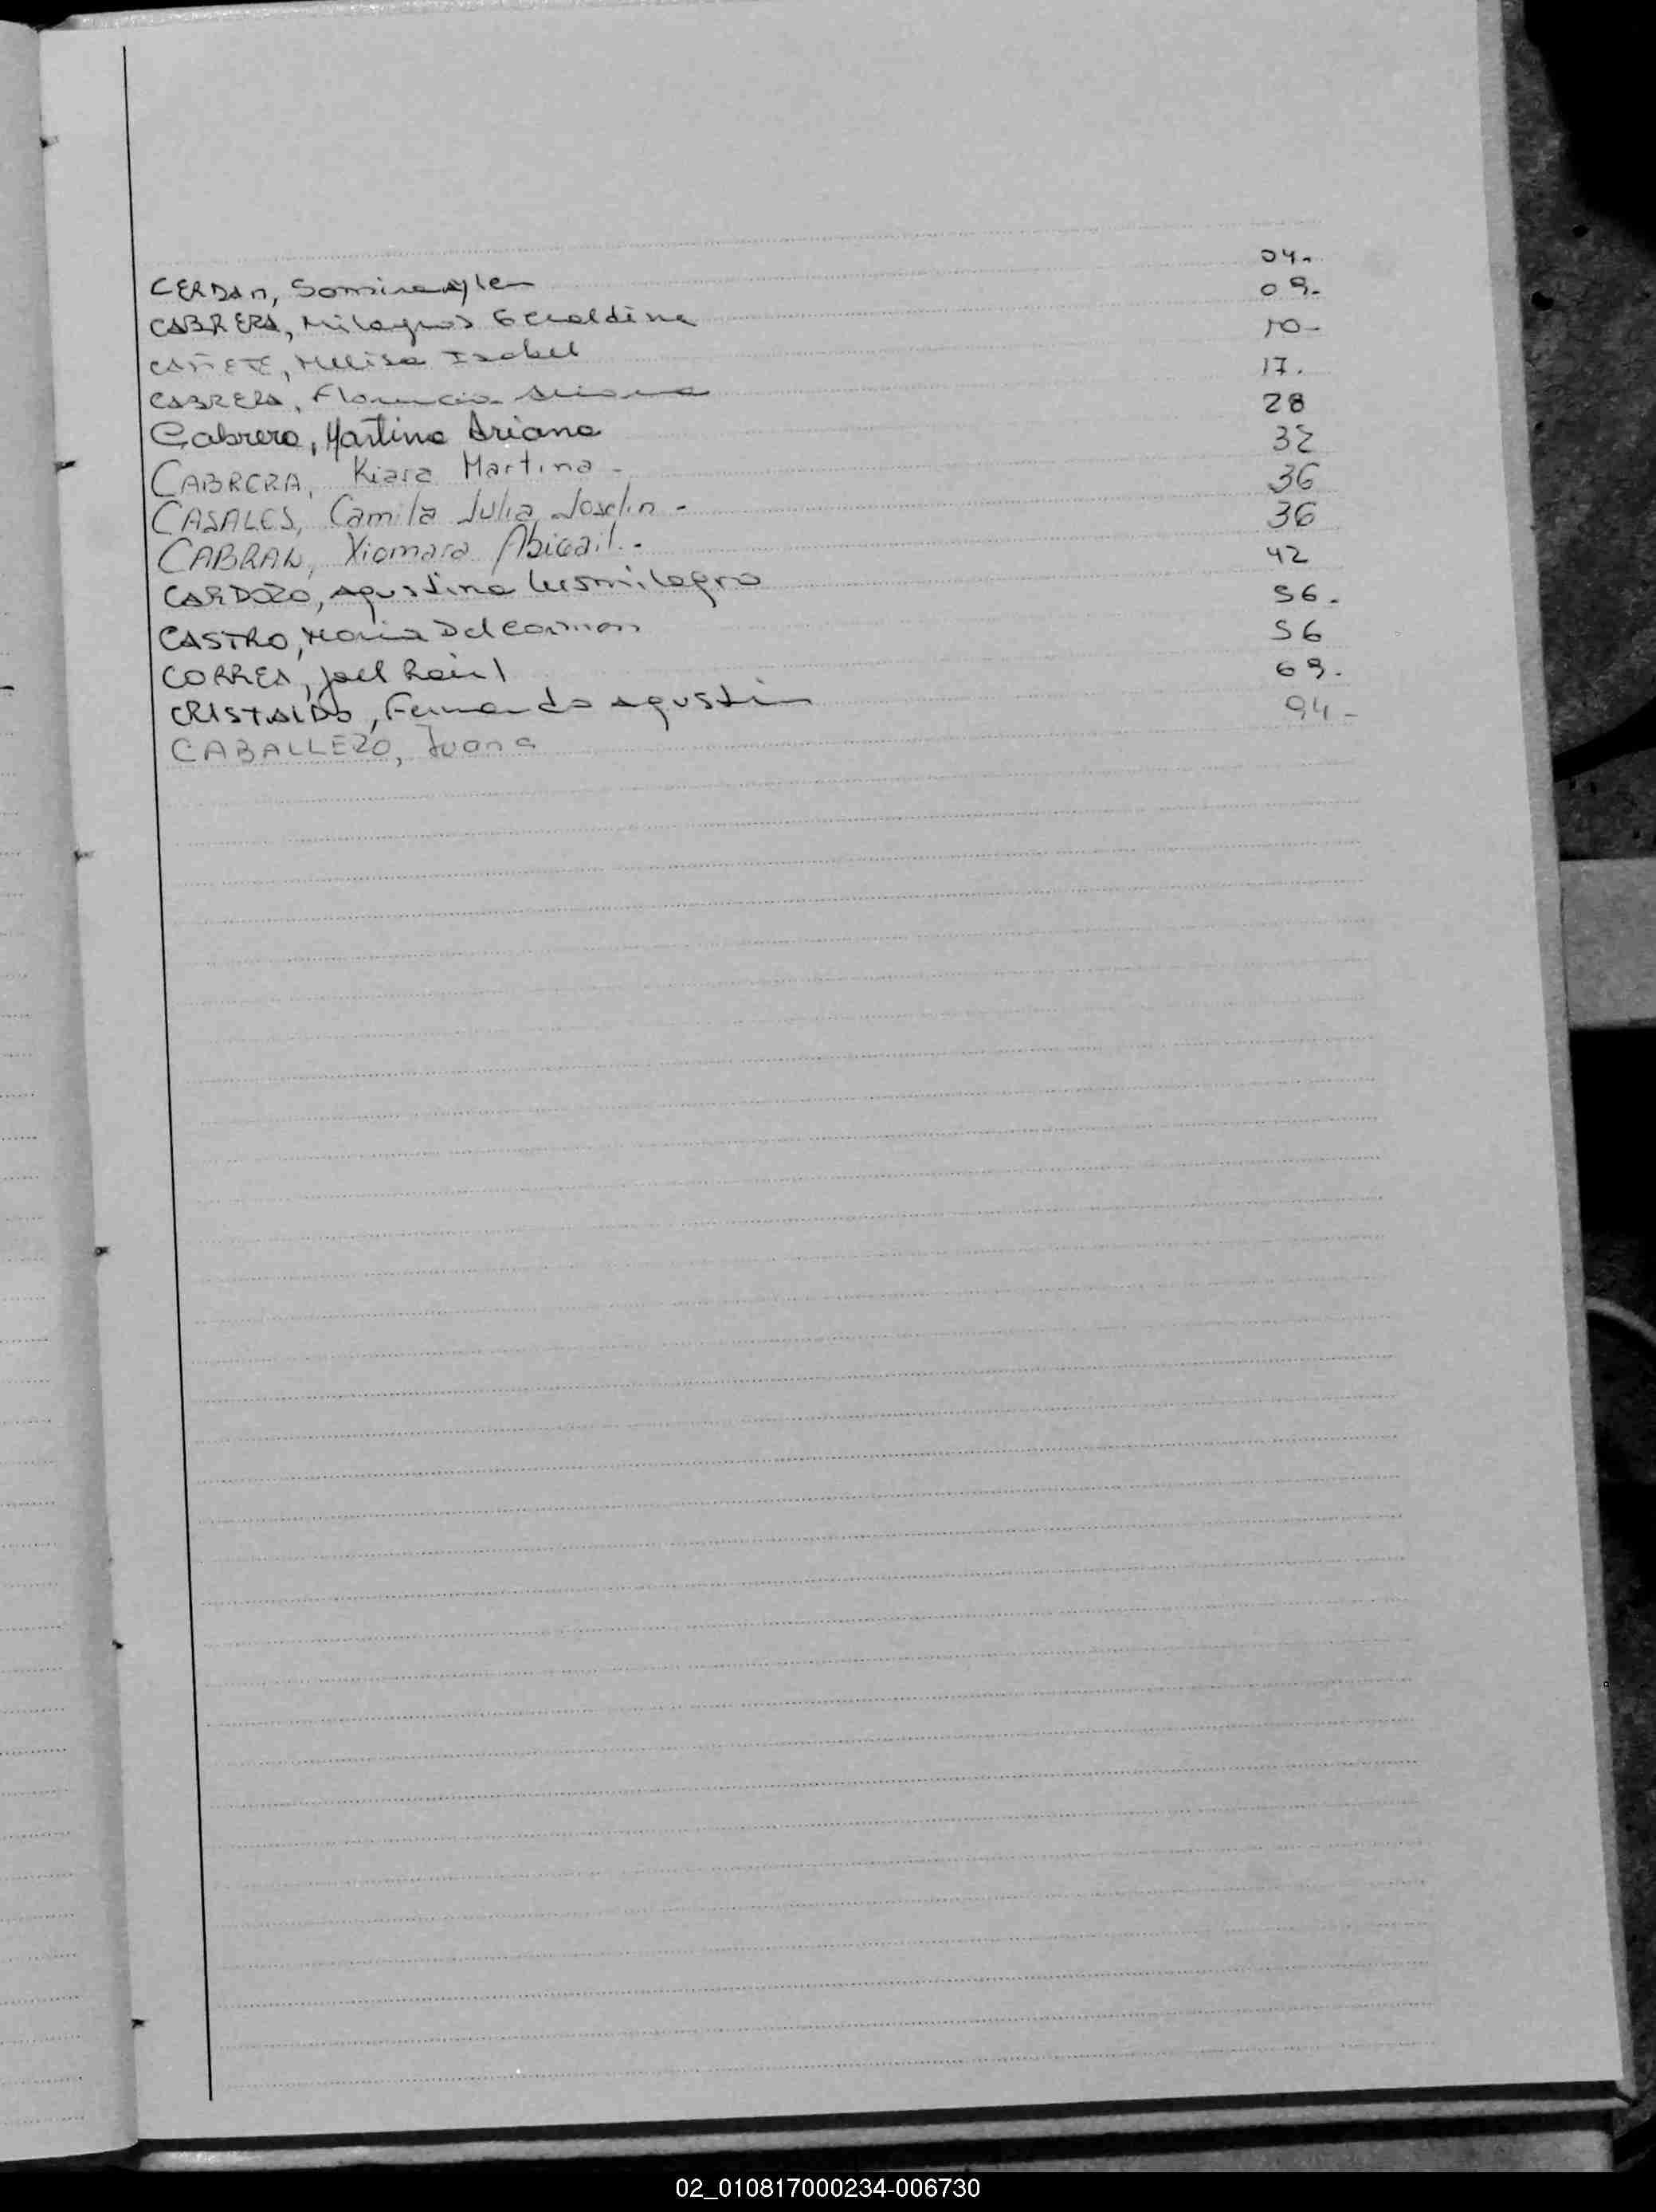 CERDAN, Samira Aylen 04.
CABRERA, Milagros Geraldine 09.
CAÑETE, Melisa Isabel 10-
CABRERA, Florencia Ariana 17.
Cabrera, Martina Ariana 28
CABRERA, Kiara Martina - 32
CASALES, Camila Julia Joselin - 36
CABRAL, Xiomara Abigail.- 36
CARDOZO, Agustina Luzmilagro 42
CASTRO, Maria Del Carmen 56.
CORREA, Joel Raúl 56
CRISTALDO, Fernando Agustin 69.
CABALLERO, Juana 94-
02_010817000234-006730